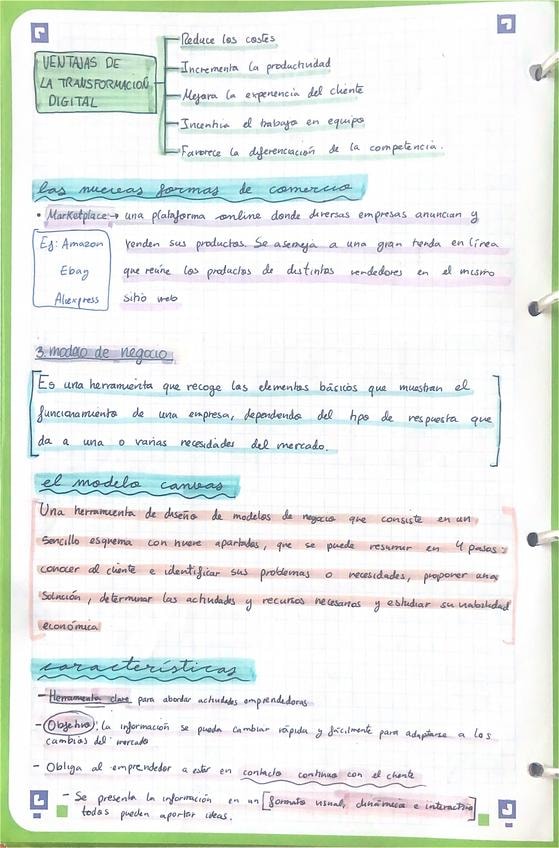 VENTAJAS DE
LA TRANSFORMACIÓN
DIGITAL
Reduce los costes
Incrementa la productividad
Mejora la experiencia del cliente
Incentiva el trabajo en equipo
Favorece la diferenciación de la competencia.
las nuevas formas de comercio
• Marketplace → una plataforma online donde diversas empresas anuncian y
venden sus productos. Se asemeja a una gran tienda en línea
que reúne los productos de distintos vendedores en el mismo
sitio web
Ej: Amazon
Ebay
Aliexpress
3. modelo de negocio
Es una herramienta que recoge los elementos básicos que muestran el
funcionamiento de una empresa, dependiendo del tipo de respuesta que
da a una o varias necesidades del mercado.
el modelo canvas
Una herramienta de diseño de modelos de negocio que consiste en un
sencillo esquema con nueve apartados, que se puede resumir en 4 pasos:
conocer al cliente e identificar sus problemas o necesidades, proponer una
solución, determinar las actividades y recursos necesarios y estudiar su viabilidad
económica
características
- Herramienta clave para abordar actividades emprendedoras
- Objetivo: la información se pueda cambiar rápida y fácilmente para adaptarse a los
cambios del mercado
- Obliga al emprendedor a estar en contacto continuo con el cliente
- Se presenta la información en un [formato visual, dinámico e interactivo]
todos pueden aportar ideas.